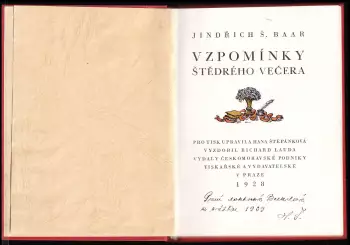 JINDŘICH Š. BAAR
VZPOMÍNKY
ŠTĚDRÉHO VEČERA
PRO TISK UPRAVILA HANA ŠTĚPÁNKOVÁ
VYZDOBIL RICHARD LAUDA
VYDALY ČESKOMORAVSKÉ PODNIKY
TISKAŘSKÉ A VYDAVATELSKÉ
V PRAZE
1928